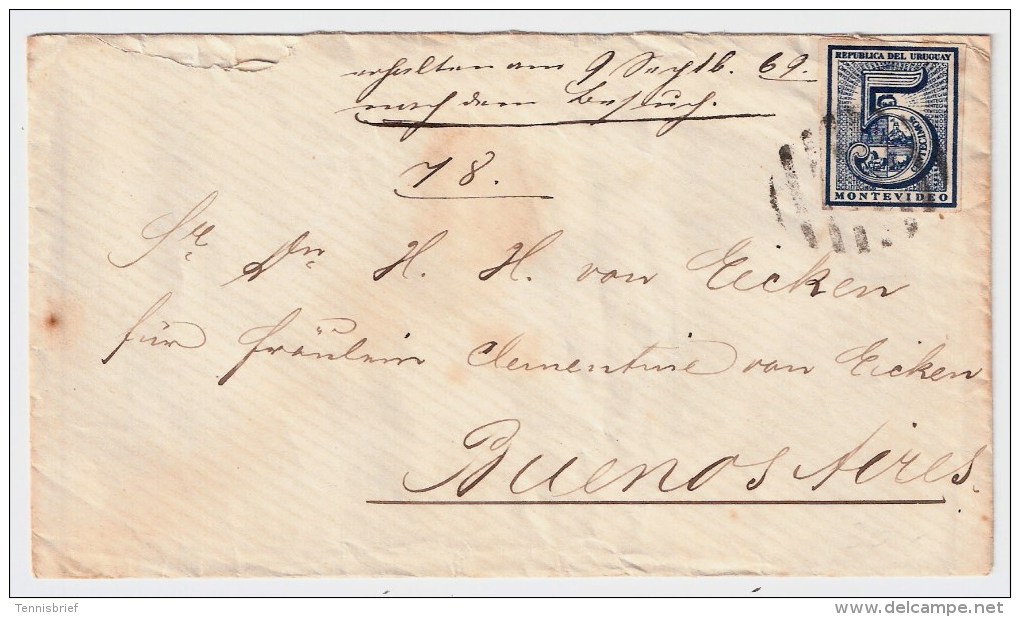 erhalten am 9 Septb. 69.
nach dem Besuch.
78.
REPUBLICA DEL URUGUAY
5
CENTECIMOS
MONTEVIDEO
Sr. Dn. H. H. von Eicken
für Fräulein Clementine von Eicken
Buenos Aires.
Tennisbrief
delcampe.net